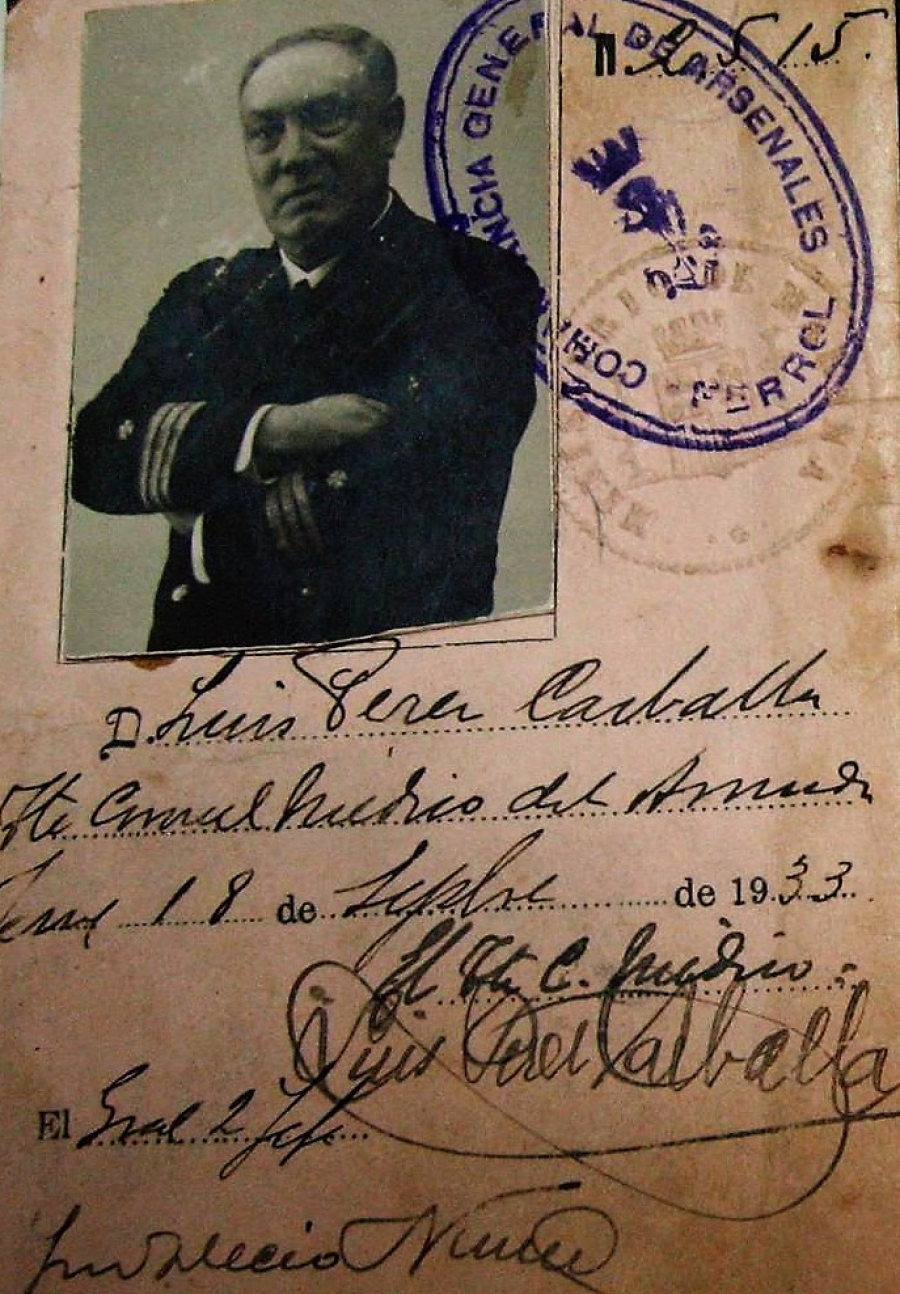 COMANDANCIA GENERAL DE ARSENALES
FERROL
N. 515.
D. Luis Perez Carballa
Tte Coronel Medico del Armada
18 de Sepbre de 1933.
El Tte C. Médico.
Luis Perez Carballa
El Gral 2 Jefe
Indalecio Nuñez